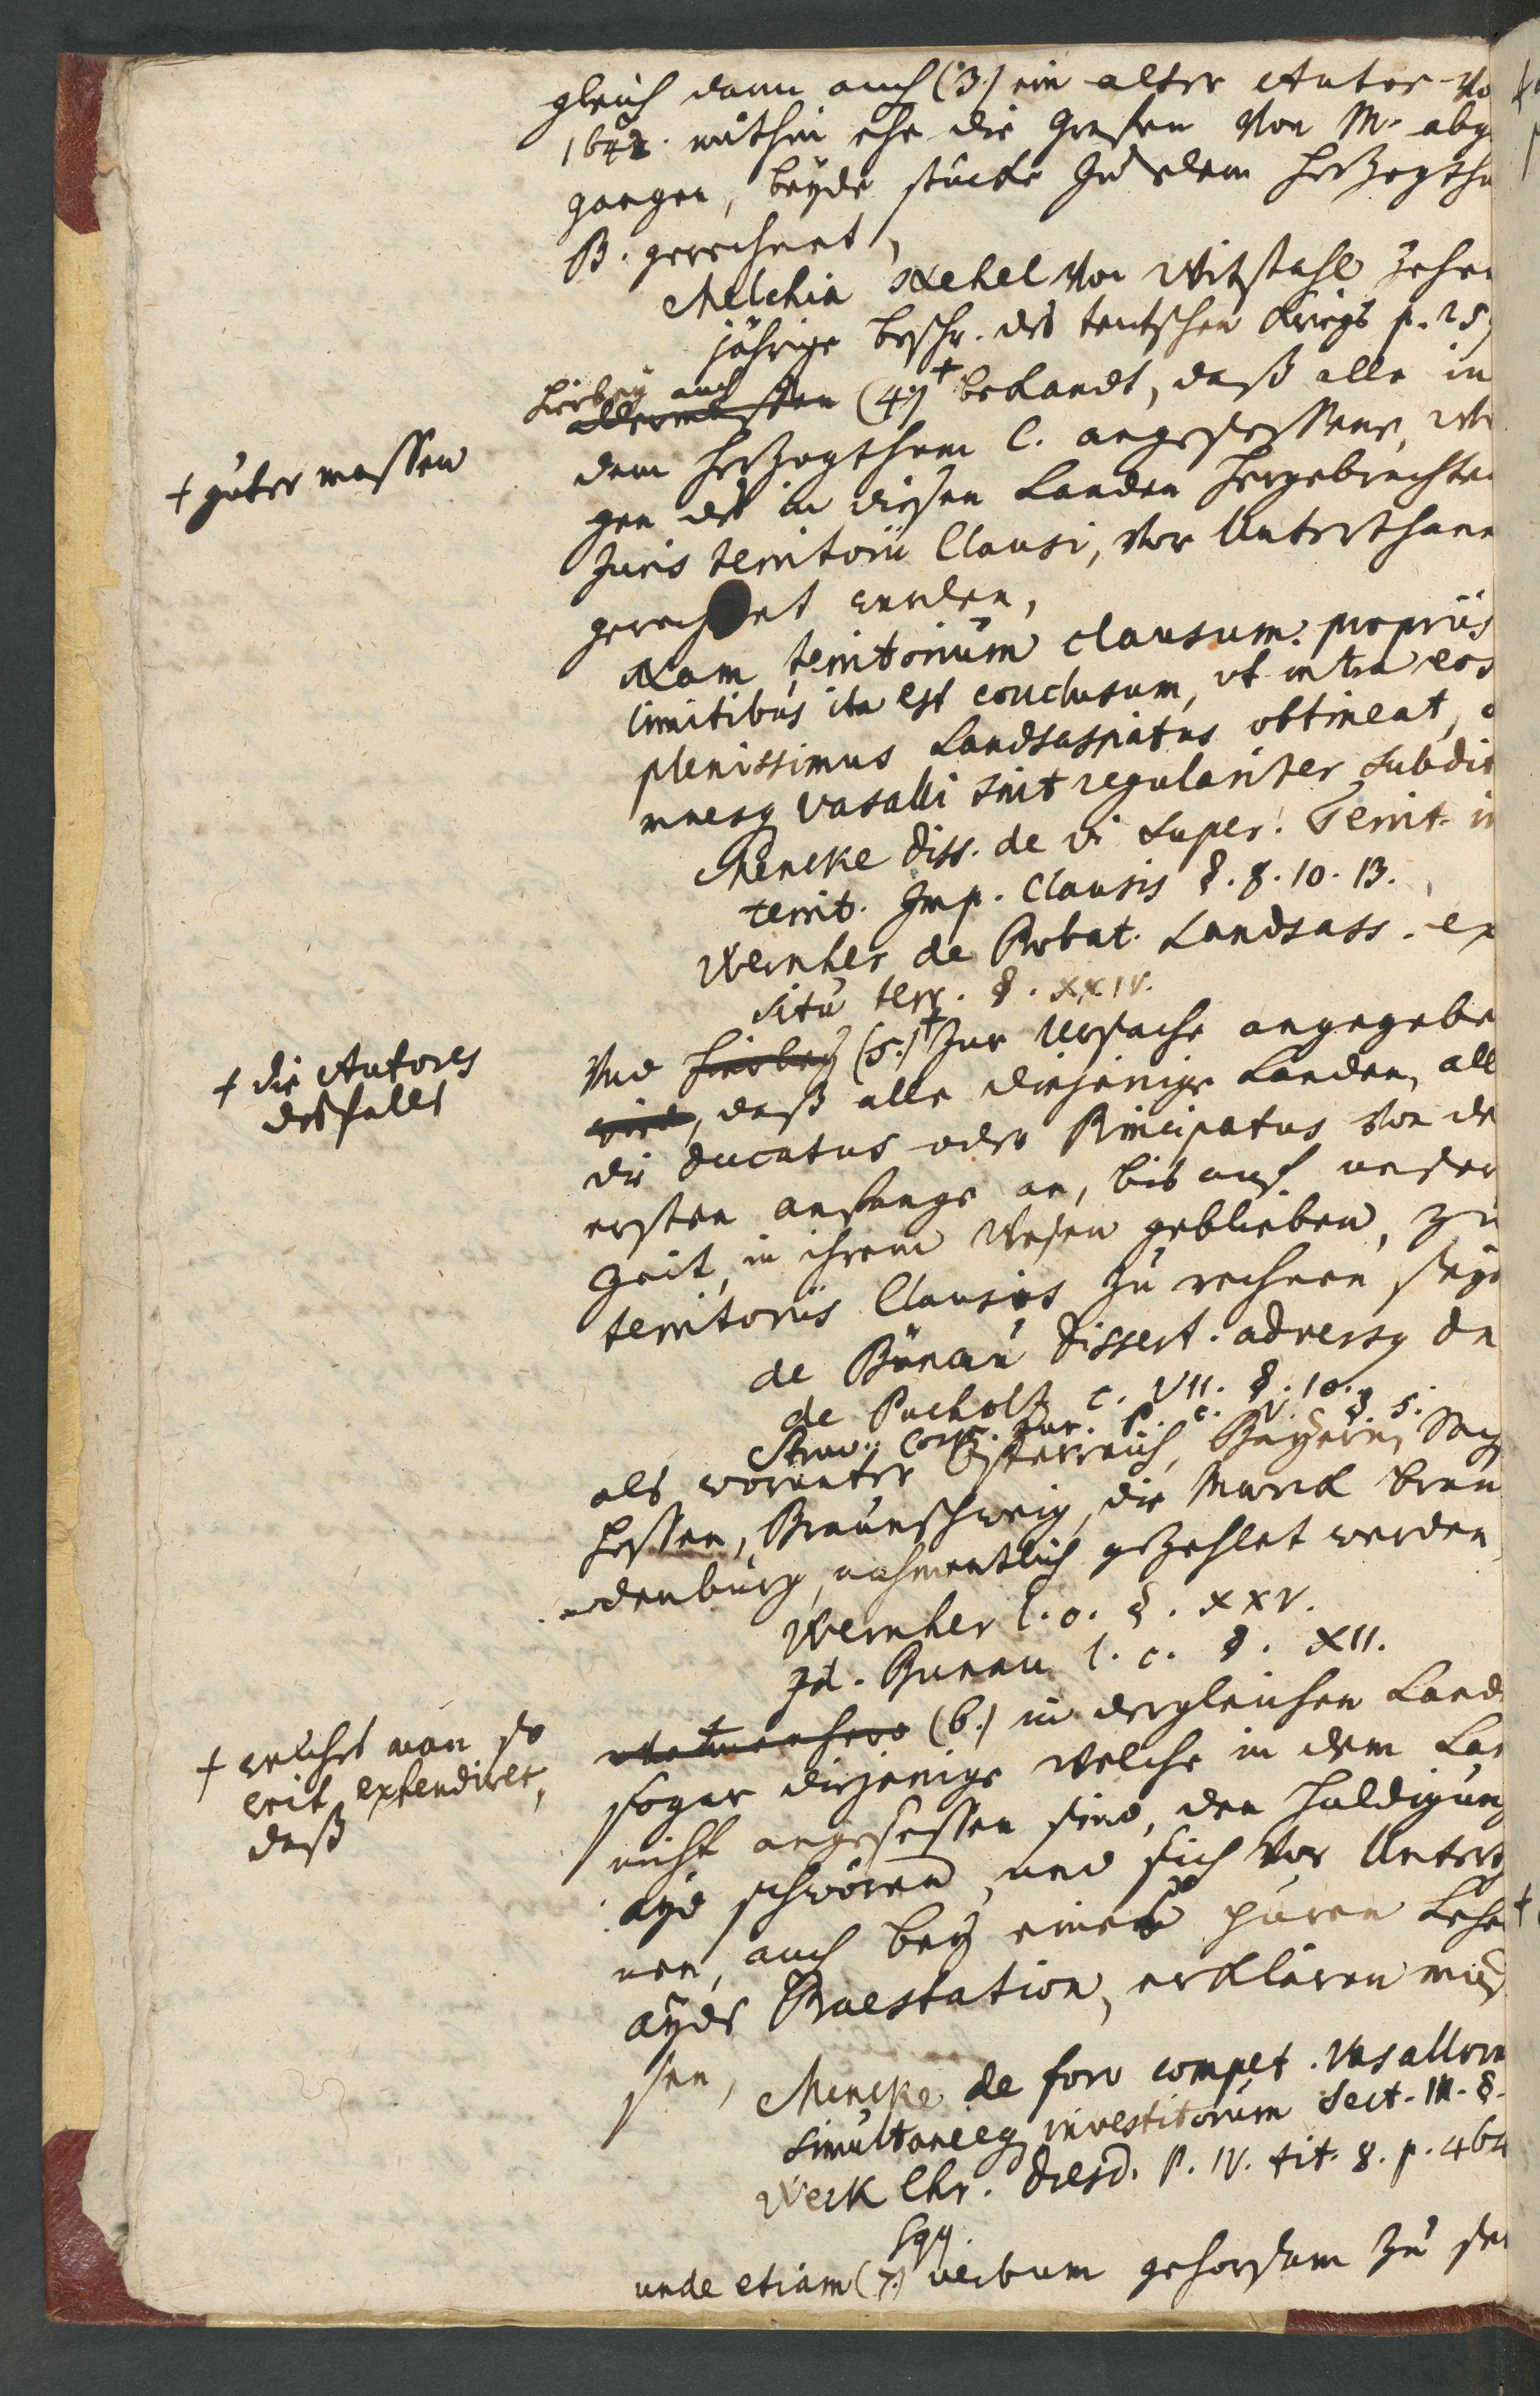 gleich dann auch (3.) ein alter Autor vo
1642. mithin ehe die Grafen von M. abge
gangen, beyde stücke zu dem Herzogthu
B. gerechnet,
Melchia von Witstahl zehen
jährige beschr. des teutschen Kriegs p. 25
hierbey auch
(4.) + bekandt, daß alle in
dem Herzogthum C. angesessene, we
+ guter massen
gen des in diesen Landen hergebrachten
Juris territorii Clausi, vor Unterthane
gerechnet werden,
Nam territorium clausum propriis
limitibus ita est conclusum, ut intra eos
plenissimus Landsassiatus obtineat, o
mnesq vasalli sint regulariter subdit
Mencke diss. de vi super. Territ. in
territ. Imp. Clausis §. 8. 10. 13.
Wernher de Probat. Landsass. ex
situ terr. §. XXIV.
+ die Autores
desfalls
Und hierbey (5.) + zur Ursache angegebe
wird, daß alle diejenige Landen, all
die Ducatus oder Principatus von de
ersten anfange an, bis auf unsere
Zeit, in ihrem Wesen geblieben, zu
territoriis Clausis zu rechnen seye
de Bünau Dissert. adversq Dn
de Pucholtz c. VII. §. 10.
Struv. Corp. Jur. P. c. V. § 5.
als worunter Österreich, Bayern, Sach
Hessen, Braunschweig, die Marck bran
denburg, nahmentlich gezehlet werden,
Wernher l. c. §. XXV.
Id. Bunau l. c. §. XII.
+ welches man so
weit extendiret,
daß
(6.) in dergleichen Land
sogar diejenige welche in dem Lan
nicht angesessen sind, den Huldigung
ayd schwören, und sich vor Untertha
nen, auch bey einer puren Lehe
ayds Praestation, erklären müs
sen,
Mencke de foro compet. Vasallorum
simultaneeq investitorum Sect. III. §.
Weck Chr. Dresd. P. IV. tit. 8. p. 464
sqq.
unde etiam (7.) verbum gehorsam zu se